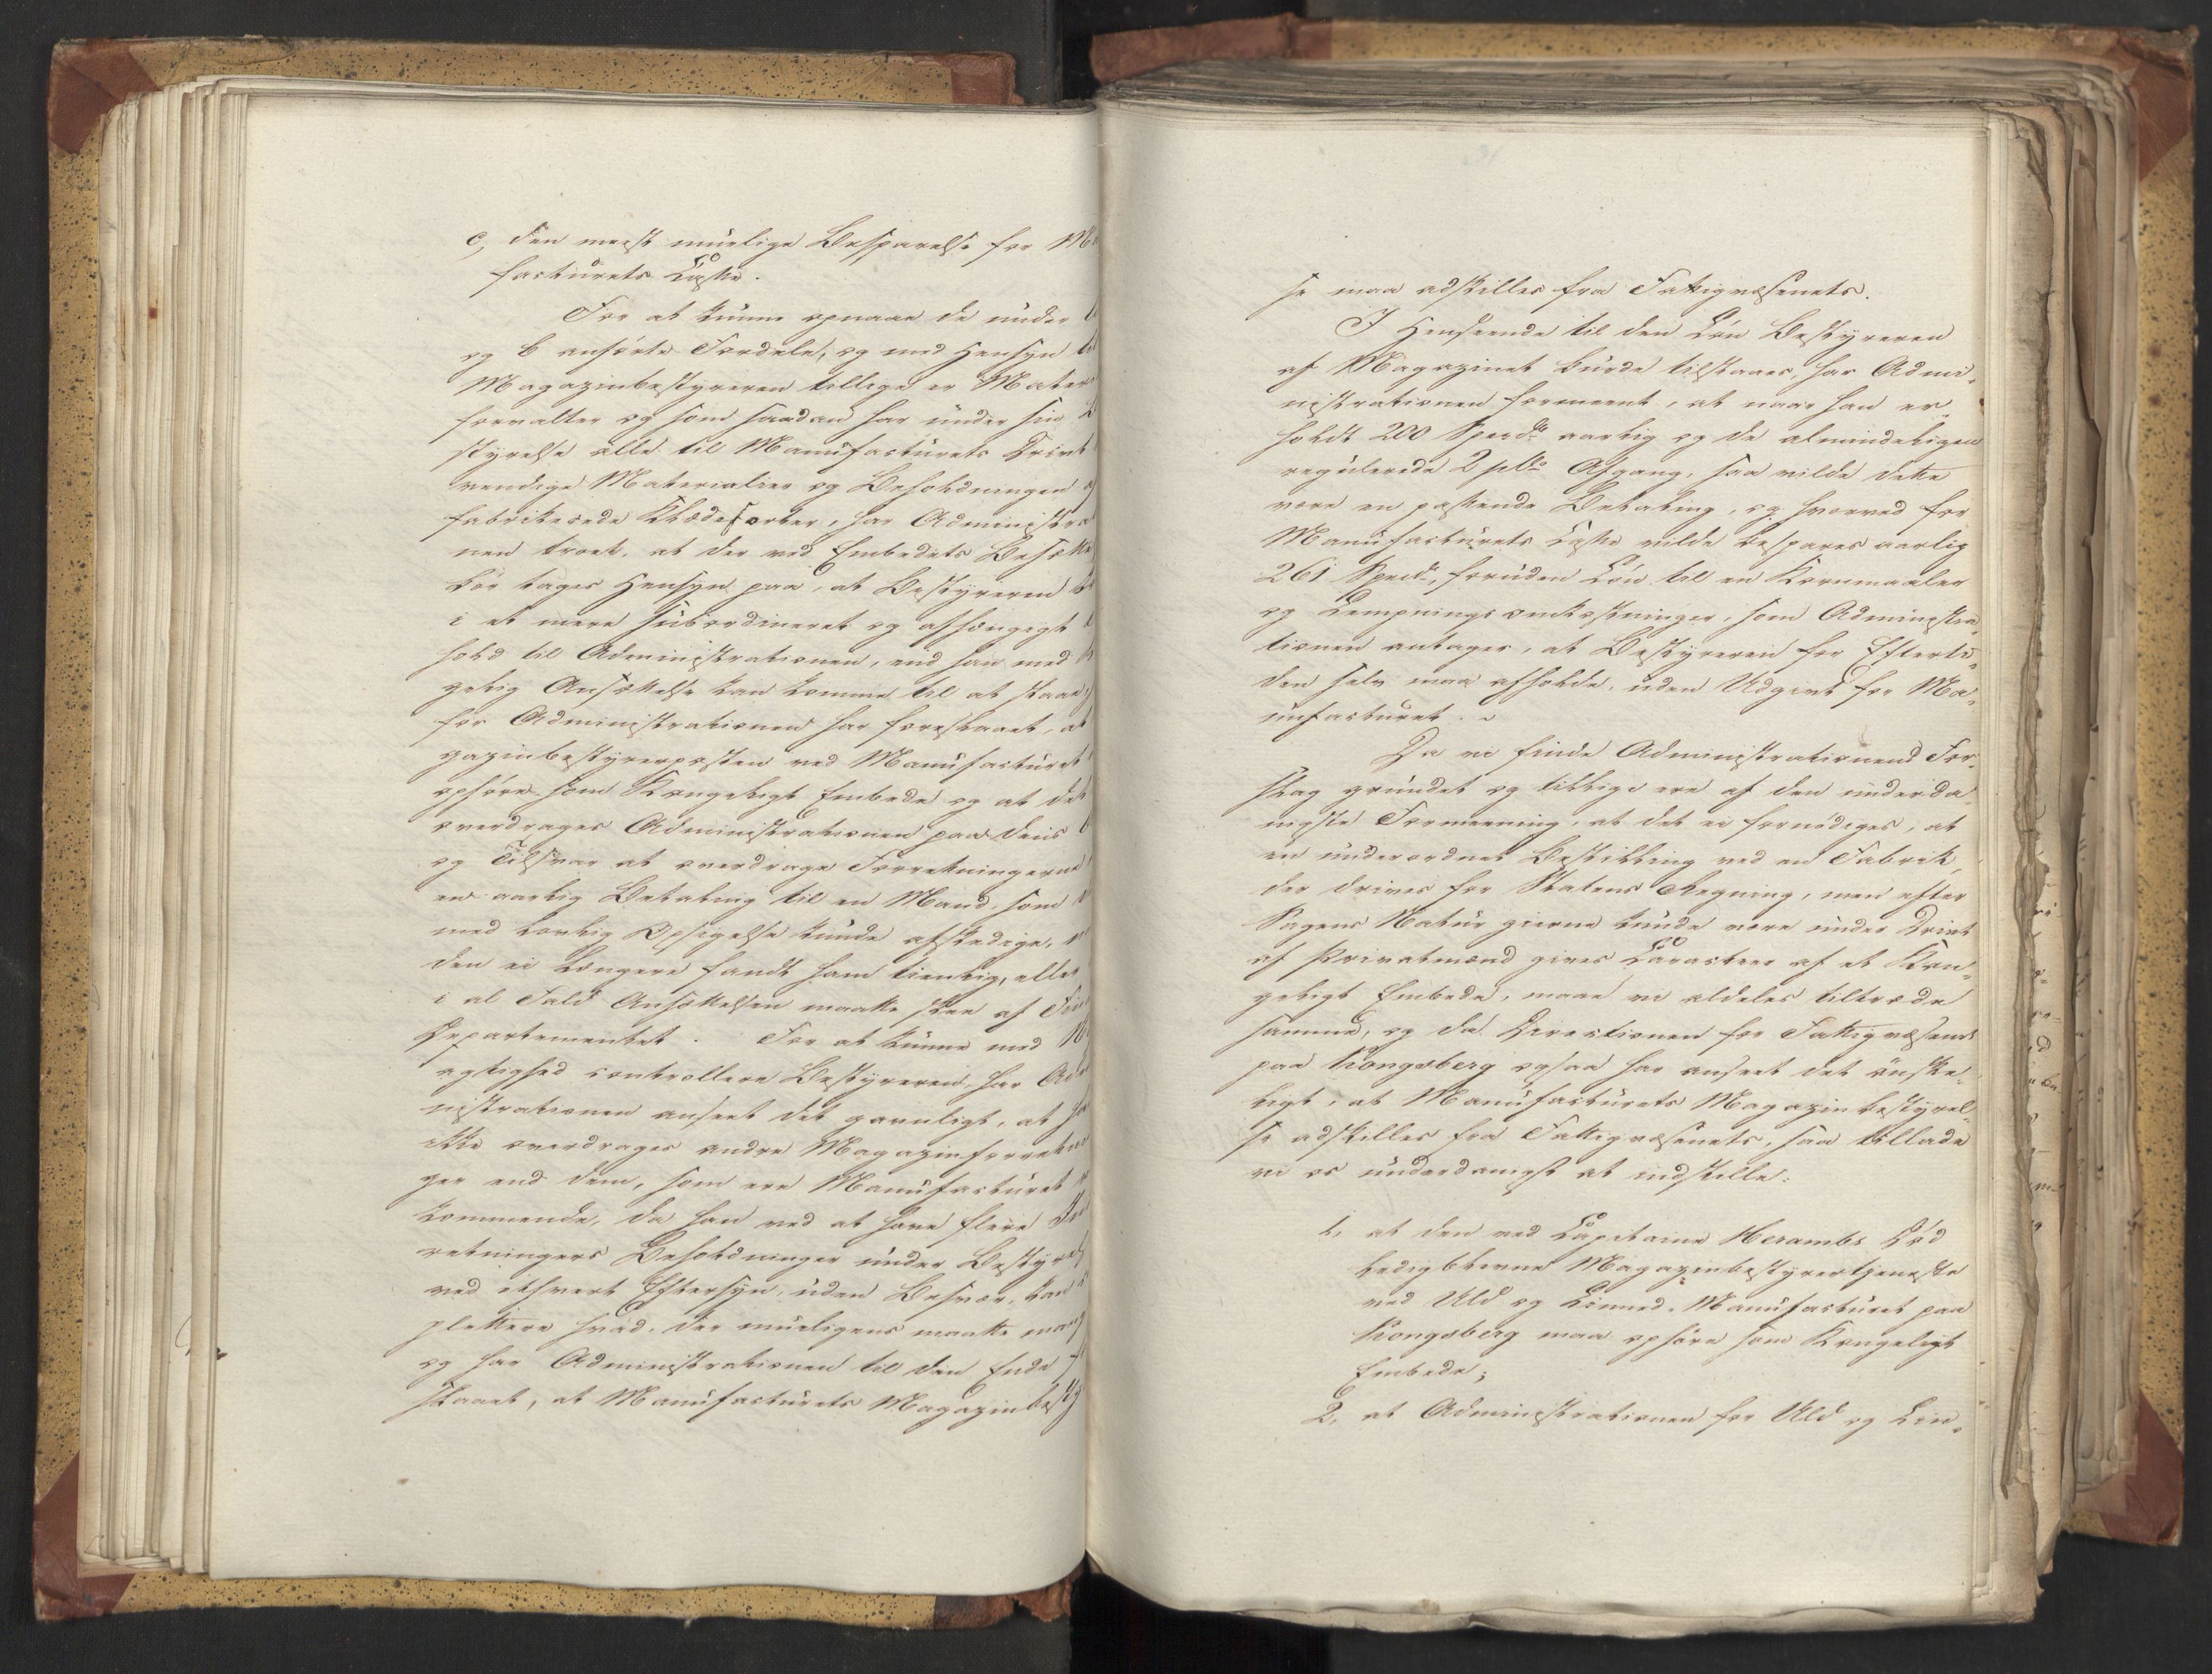 c, den meest muelige Besparelse for Ma
facturets Casse.
For at kunne opnaae de under
og b anførte Fordele, og med Hensyn til
Magazinbestyreren tillige er Mater
forvalter og som saadan har under sin B
styrelse alle til Manufacturets Drivt
vendige Materialier og Beholdningen af
fabrikerede Klædesorter, har Administra
nen troet, at der ved Embedets Besætte
bør tages Hensyn paa, at Bestyreren
i et mere subordineret og afhængigt
hold til Administrationen, end han med
gelig Ansættelse kan komme til at staae,
for Administrationen har foreslaaet, at
gazinbestyrerposten ved Manufacturet
ophører som Kongeligt Embede og at det
overdrages Administrationen paa dens
og Tilsvar at overdrage Forretningerne
en aarlig Betaling til en Mand, som
med lovlig Opsigelse kunde afskedige, n
den ei længere fandt ham tienlig, eller
i al Fald Ansættelsen maatte skee af
Departementet. For at kunne med N
agtighed controllere Bestyreren, har Ad
nistrationen anseet det gavnligt, at ha
ikke overdrages andre Magazinforretnin
ger end dem, som ere Manufacturet
kommende, da han ved at have flere Ind
retningers Beholdninger under Bestyrel
ved ethvert Eftersyn, uden Besvær, kan
plettere hvad, der mueligens maatte mang
og har Administrationen til den Ende f
slaaet, at Manufacturets Magazinbesty
se maa adskilles fra Fattigvæsenets.
I Henseende til den Løn Bestyreren
af Magazinet burde tilstaaes, har Admi-
nistrationen formeent, at naar han er-
holdt 200 Specdr aarlig og de almindeligen
regulerede 2 pCto Afgang, saa vilde dette
være en passende Betaling, og hvorved for
Manufacturets Casse vilde bespares aarlig
261 Specdr, foruden Løn til en Kornmaaler
og Lempningsomkostninger, som Administra-
tionen antager, at Bestyreren for Efterti-
den selv maa afholde, uden Udgivt for Ma-
nufacturet.
Da vi finde Administrationens For-
slag grundet og tillige ere af den underda-
nigste Formeening, at det ei fornødiges, at
en underordnet Bestilling ved en Fabrik,
der drives for Statens Regning, men efter
Sagens Natur gierne kunde være under Drivt
af Privatmænd gives Caracteer af et Kon-
geligt Embede, maae vi aldeles tiltræde
samme, og da Directionen for Fattigvæsenet
paa Kongsberg ogsaa har anseet det ønske-
ligt, at Manufacturets Magazinbestyrel-
se adskilles fra Fattigvæsenets, saa tillade
vi os underdanigst at indstille:
1, at den ved Capitaine Herambs Død
ledigblevne Magazinbestyrertjeneste
ved Uld og Linned-Manufacturet paa
Kongsberg maa ophøre som Kongeligt
Embede;
2, at Administrationen for Uld og Lin-